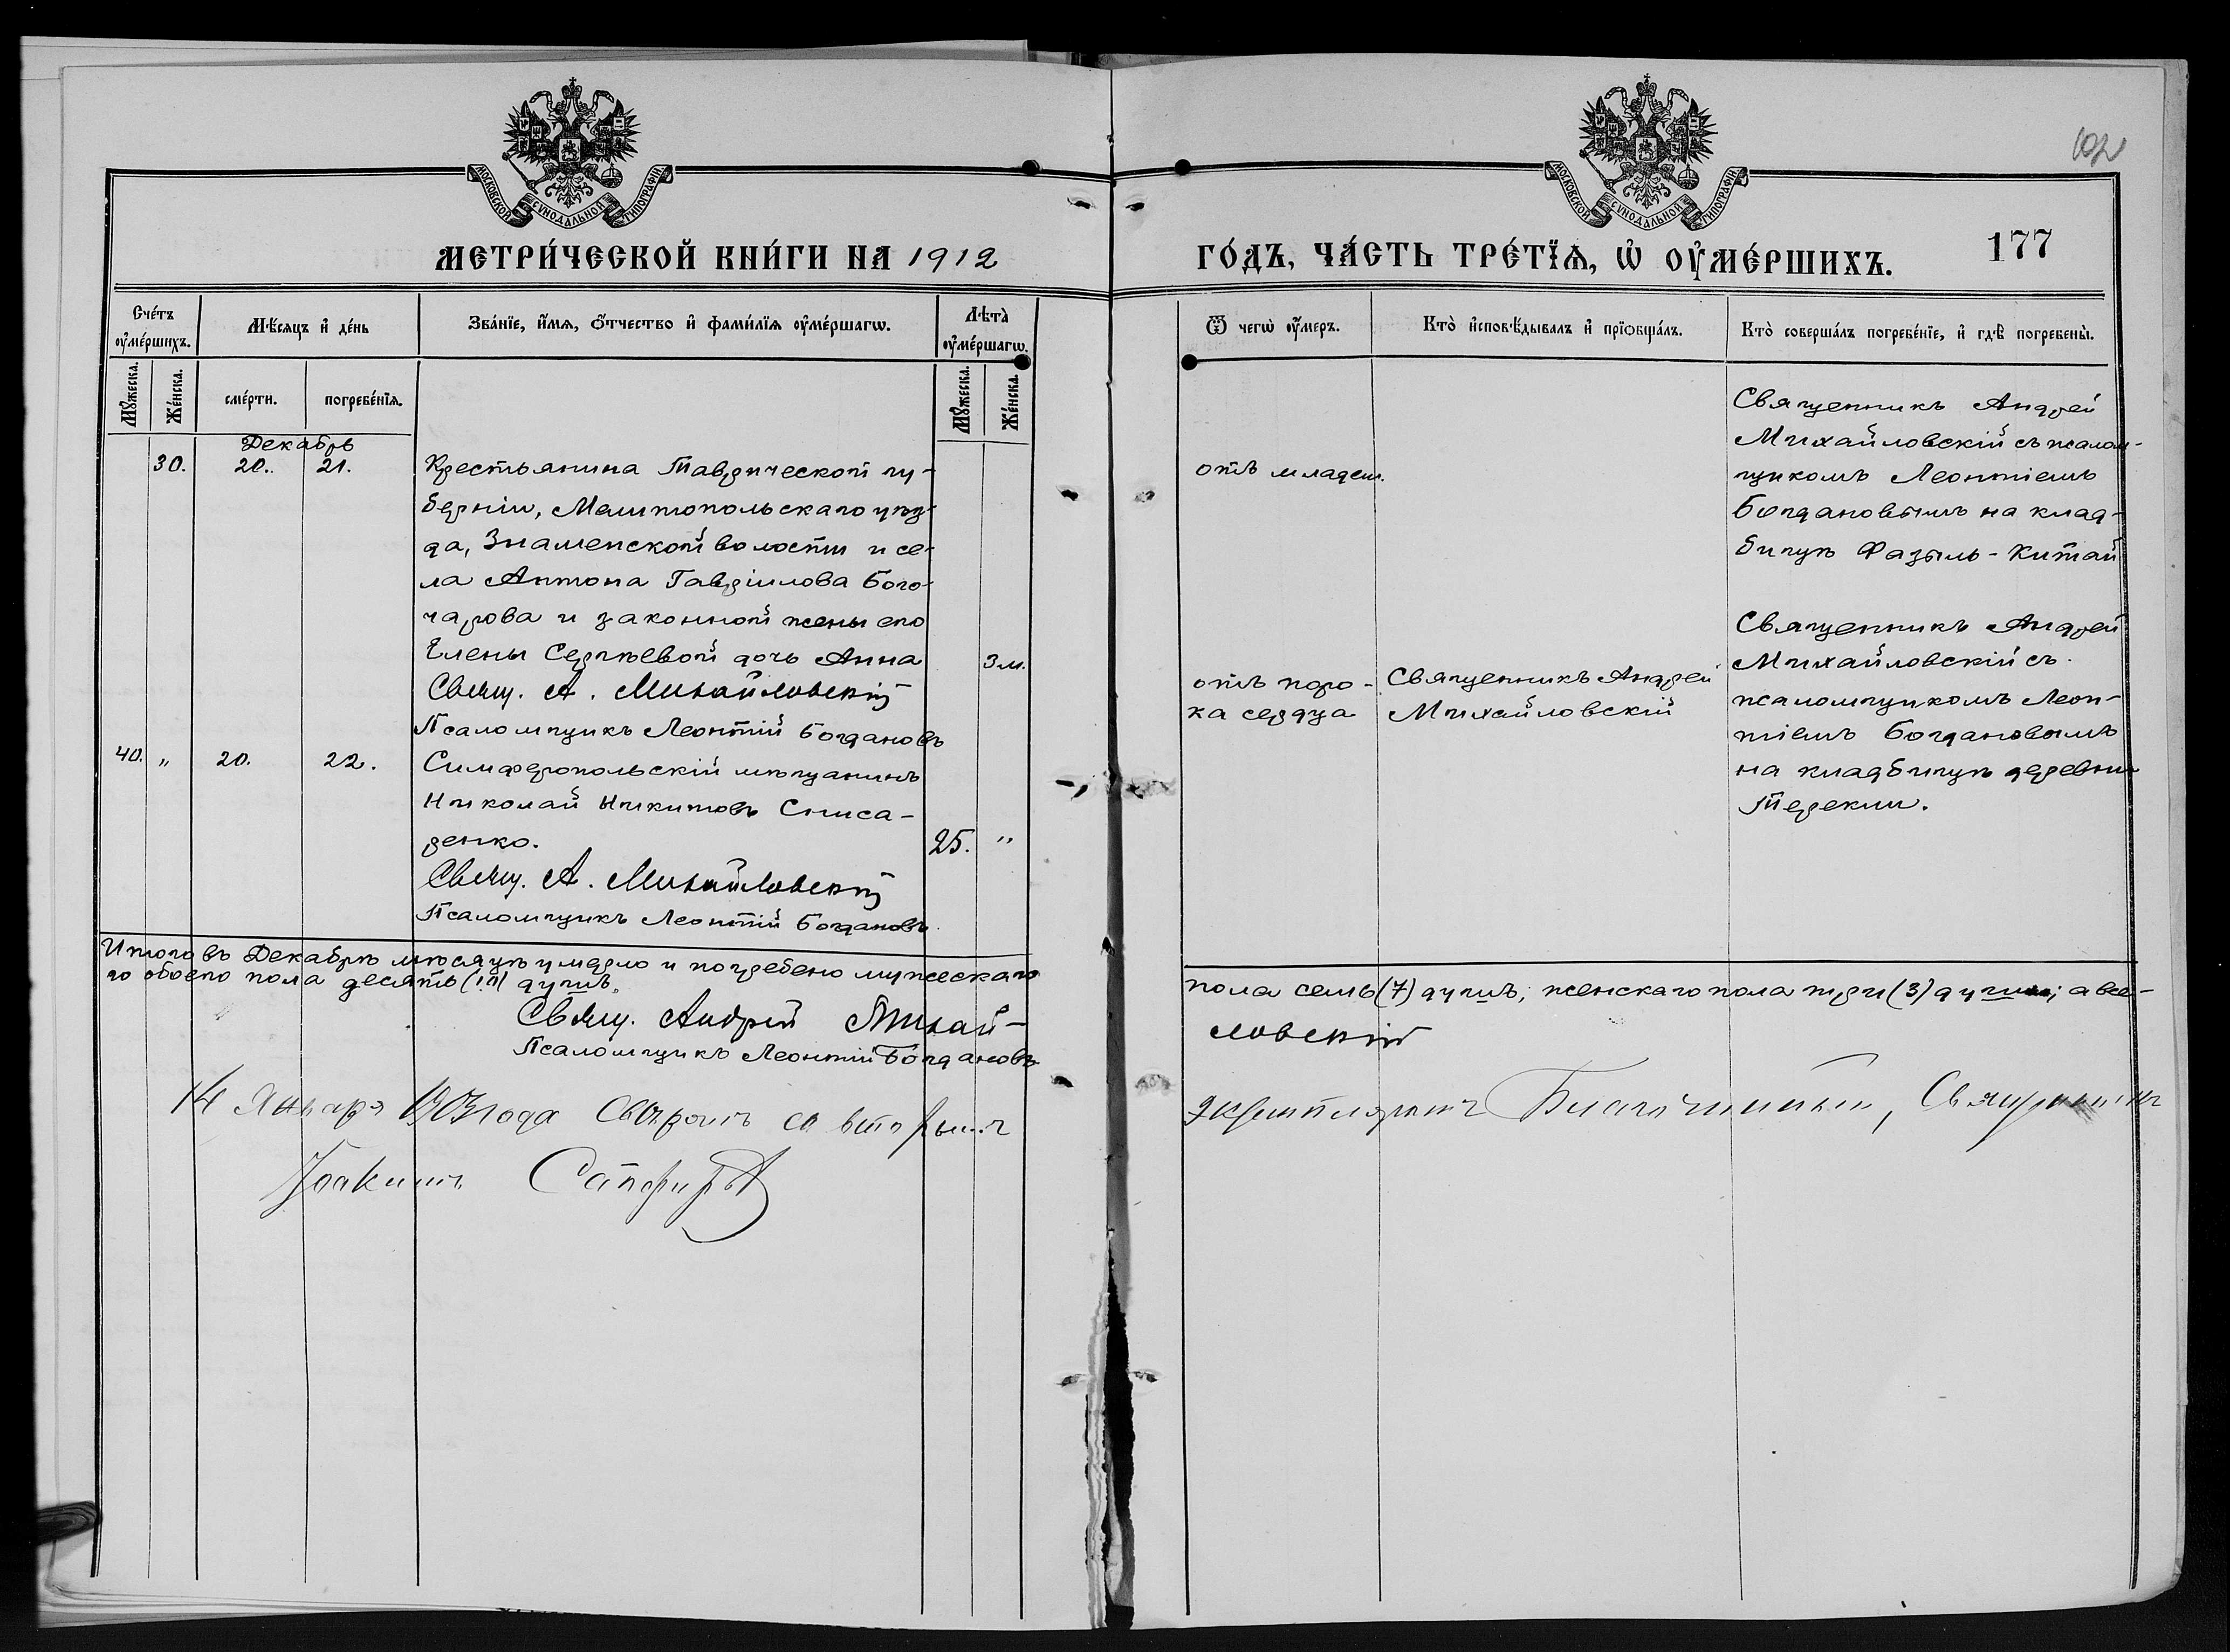 МОСКОВСКОЙ СѴНОДАЛЬНОЙ ТИПОГРАФІИ
МЕТРИ́ЧЕСКОЙ КНИ́ГИ НА 1912
Сче́тъ оу҆ме́ршихъ.
Мѣ́сяцъ и҆ де́нь
Зва́нїе, и҆́мя, ѻ҆́тчество и҆ фами́лїя оу҆ме́ршагѡ.
Лѣта̀ оу҆ме́ршагѡ.
Мꙋ́жеска.
Же́нска.
сме́рти.
погребе́нїя.
Мꙋ́жеска.
Же́нска.
Декабрь
30.
20.
21.
Крестьянина Таврической гу-
берніи, Мелитопольскаго уѣз-
да, Знаменской волости и се-
ла Антона Гавріилова Бого-
чарова и законной жены его
Елены Сергѣевой дочь Анна
3 м.
Свящ. А. Михайловскій
Псаломщикъ Леонтій Богдановъ
40. „ 20. 22.
Симферопольскій мѣщанинъ
Николай Никитовъ Сниса-
ренко.
25. „
Свящ. А. Михайловскій
Псаломщикъ Леонтій Богдановъ.
Итого въ Декабрѣ мѣсяцѣ умерло и погребено мужескаго
го обоего пола десять (10) душъ.
Свящ. Андрей Михай-
Псаломщикъ Леонтій Богдановъ
14 Января 1903 года Свѣрялъ со вторымъ
Іоакимъ
МОСКОВСКОЙ СѴНОДАЛЬНОЙ ТИПОГРАФІИ
102
ГО́ДЪ, ЧА́СТЬ ТРЕ́ТЇѦ, Ѡ҆ ОУ҆МЕ́РШИХЪ.
177
Ѿ чегѡ̀ оу҆́меръ.
Кто̀ и҆сповѣ́дывалъ и҆ прїѻбща́лъ.
Кто̀ соверша́лъ погребе́нїе, и҆ гдѣ̀ погребены̀.
отъ младен.
Священникъ Андрей
Михайловскій съ псалом-
щикомъ Леонтіемъ
Богдановымъ на клад-
бищѣ Фазыль-Китай
отъ поро-
ка сердца
Священникъ Андрей
Михайловскій
Священникъ Андрей
Михайловскій съ
псаломщикомъ Леон-
тіемъ Богдановымъ
на кладбищѣ деревни
Терекли.
пола семь (7) душъ; женскаго пола три (3) души; а все-
ловскій
экземпляромъ Благочинный, Священникъ